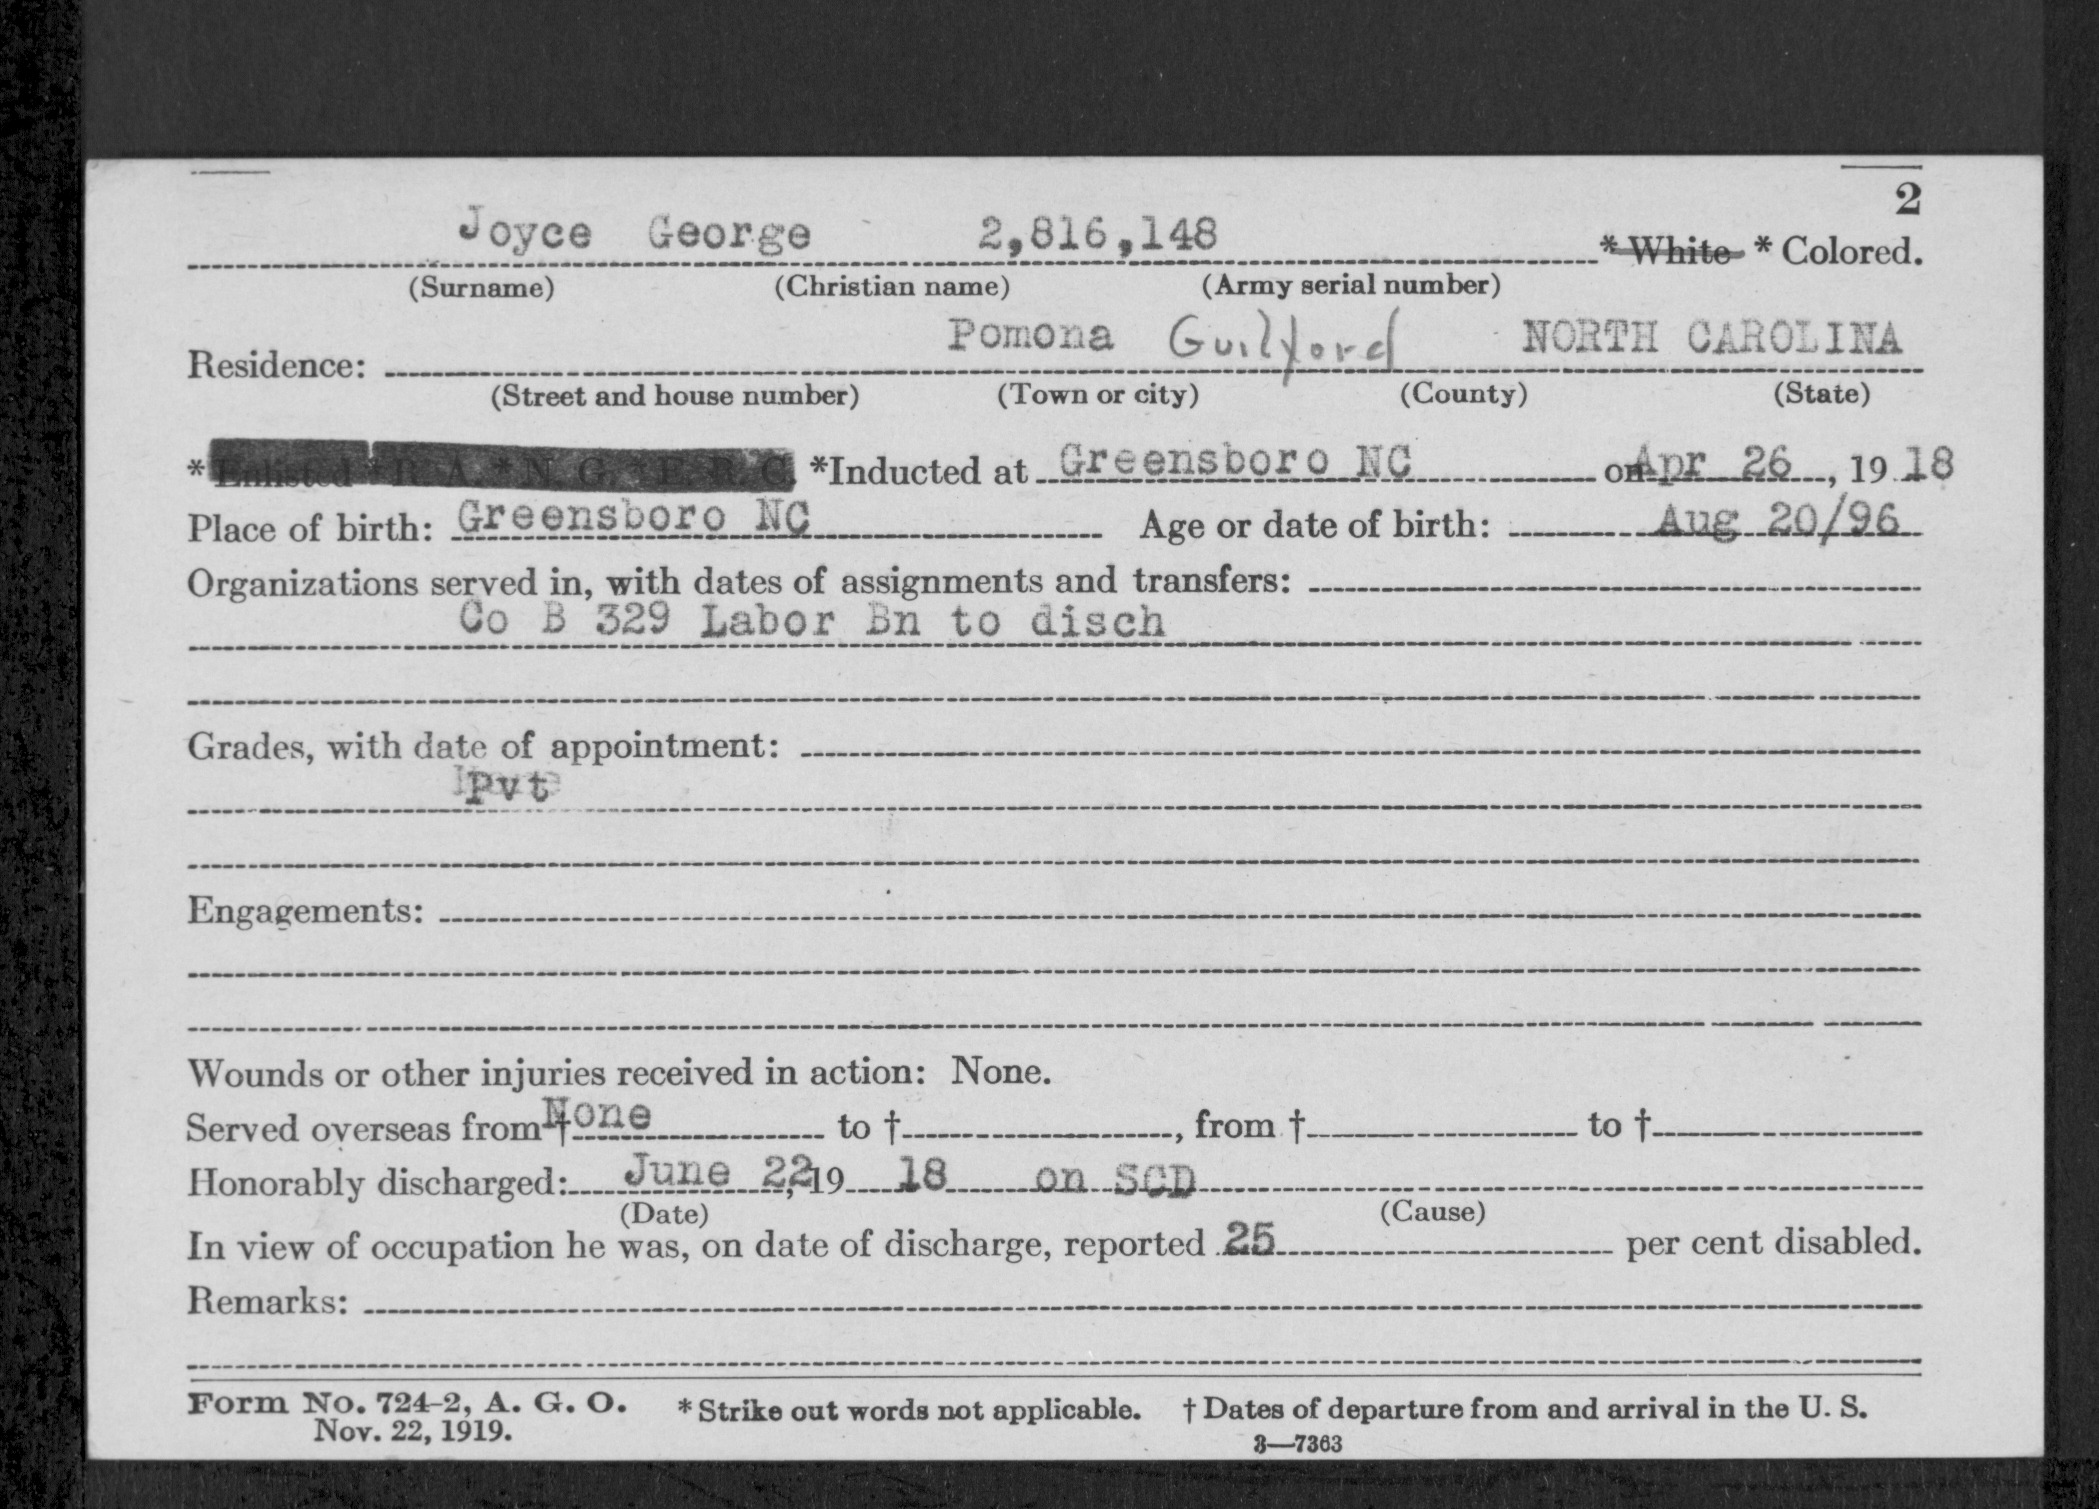 2
Joyce George 2,816,148 * White * Colored.
(Surname) (Christian name) (Army serial number)
Residence: Pomona Guilford NORTH CAROLINA
(Street and house number) (Town or city) (County) (State)
* Enlisted * R. A. * N. G. * E. R. C. *Inducted at Greensboro NC on Apr 26, 19 18
Place of birth: Greensboro NC Age or date of birth: Aug 20/96
Organizations served in, with dates of assignments and transfers:
Co B 329 Labor Bn to disch
Grades, with date of appointment:
Pvt
Engagements:
Wounds or other injuries received in action: None.
Served overseas from † None to †, from † to †
Honorably discharged: June 22, 19 18 on SCD
(Date) (Cause)
In view of occupation he was, on date of discharge, reported 25 per cent disabled.
Remarks:
Form No. 724-2, A. G. O. * Strike out words not applicable. † Dates of departure from and arrival in the U. S.
Nov. 22, 1919. 3—7363